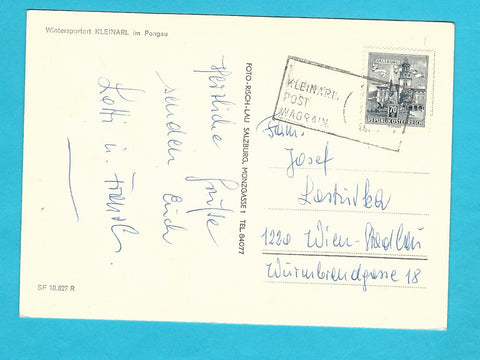 Wintersportort KLEINARL im Pongau
Herzliche Grüße
senden Euch
Lotti u.
FOTO-RISCH-LAU SALZBURG, MÜNZGASSE 1 TEL. 84077
KLEINARL
POST
WAGRAIN
REPUBLIK ÖSTERREICH
Fam.
Josef
1220 Wien-Stadlau
Wurmbrandgasse 18
SF 10.827 R